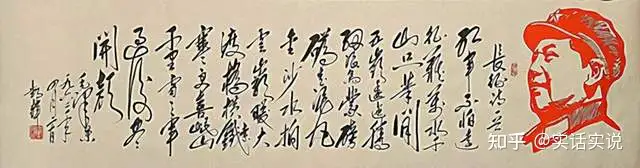 紅軍不怕遠
征難萬水千
山只等閒
五嶺逶迤騰
細浪烏蒙磅
礴走泥丸
金沙水拍
雲崖暖大
渡橋橫鐵索
寒更喜岷山
千里雪三軍
過後盡
開顏
毛澤東
知乎 @实话实说